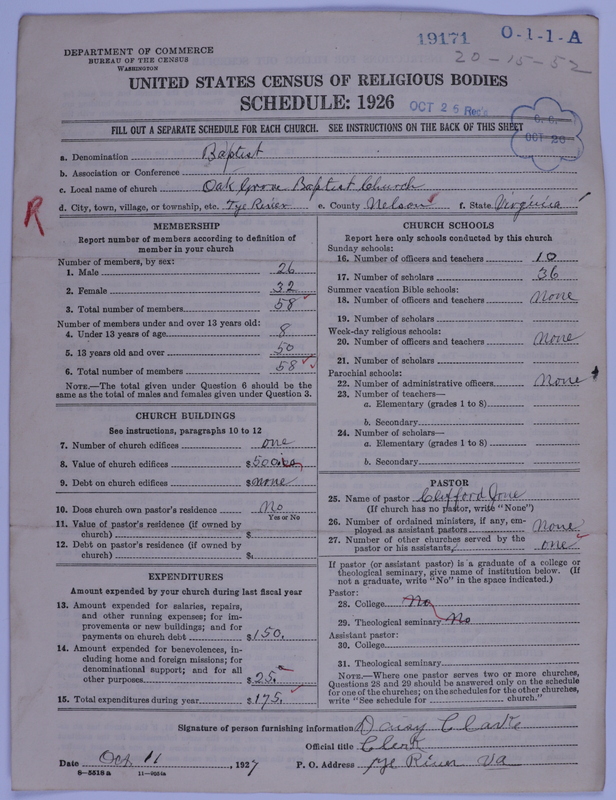 19171 O-1-1-A
20-15-52
DEPARTMENT OF COMMERCE
BUREAU OF THE CENSUS
WASHINGTON
UNITED STATES CENSUS OF RELIGIOUS BODIES
SCHEDULE: 1926
OCT 25 Rec'd
OCT 26
FILL OUT A SEPARATE SCHEDULE FOR EACH CHURCH. SEE INSTRUCTIONS ON THE BACK OF THIS SHEET
a. Denomination Baptist
b. Association or Conference
c. Local name of church Oak Grove Baptist Church
d. City, town, village, or township, etc. Tye River e. County Nelson f. State Virginia
R
MEMBERSHIP
Report number of members according to definition of
member in your church
Number of members, by sex:
1. Male 26
2. Female 32
3. Total number of members 58
Number of members under and over 13 years old:
4. Under 13 years of age 8
5. 13 years old and over 50
6. Total number of members 58
NOTE.—The total given under Question 6 should be the
same as the total of males and females given under Question 3.
CHURCH BUILDINGS
See instructions, paragraphs 10 to 12
7. Number of church edifices one
8. Value of church edifices $500.00
9. Debt on church edifices $none
10. Does church own pastor's residence? No
Yes or No
11. Value of pastor's residence (if owned by
church) $
12. Debt on pastor's residence (if owned by
church) $
EXPENDITURES
Amount expended by your church during last fiscal year
13. Amount expended for salaries, repairs,
and other running expenses; for im-
provements or new buildings; and for
payments on church debt $150.
14. Amount expended for benevolences, in-
cluding home and foreign missions; for
denominational support; and for all
other purposes $25.
15. Total expenditures during year $175.
CHURCH SCHOOLS
Report here only schools conducted by this church
Sunday schools:
16. Number of officers and teachers 10
17. Number of scholars 36
Summer vacation Bible schools:
18. Number of officers and teachers None
19. Number of scholars
Week-day religious schools:
20. Number of officers and teachers None
21. Number of scholars
Parochial schools:
22. Number of administrative officers None
23. Number of teachers—
a. Elementary (grades 1 to 8)
b. Secondary
24. Number of scholars—
a. Elementary (grades 1 to 8)
b. Secondary
PASTOR
25. Name of pastor Clifford
(If church has no pastor, write "None")
26. Number of ordained ministers, if any, em-
ployed as assistant pastors None
27. Number of other churches served by the
pastor or his assistants one
If pastor (or assistant pastor) is a graduate of a college or
theological seminary, give name of institution below. (If
not a graduate, write "No" in the space indicated.)
Pastor:
28. College No
29. Theological seminary No
Assistant pastor:
30. College
31. Theological seminary
NOTE.—Where one pastor serves two or more churches,
Questions 28 and 29 should be answered only on the schedule
for one of the churches; on the schedules for the other churches,
write "See schedule for church."
Signature of person furnishing information Daisy Clarke
Official title Clerk
Date Oct 11, 1927 P. O. Address Tye River Va
8—5518 a 11—9054a